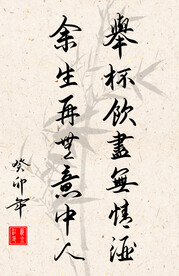 舉杯飲盡無情酒
余生再無意中人
癸卯年